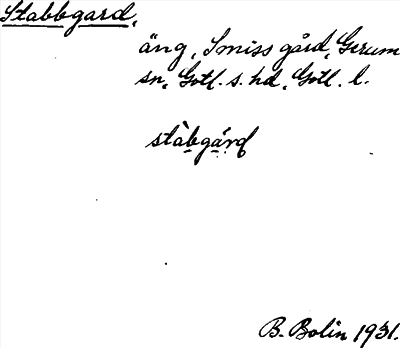 Stabbgard,
äng, Smiss gård, Gerum
sn, Gotl. s. hd, Gotl. l.
stàbgárd
B. Bolin 1931.